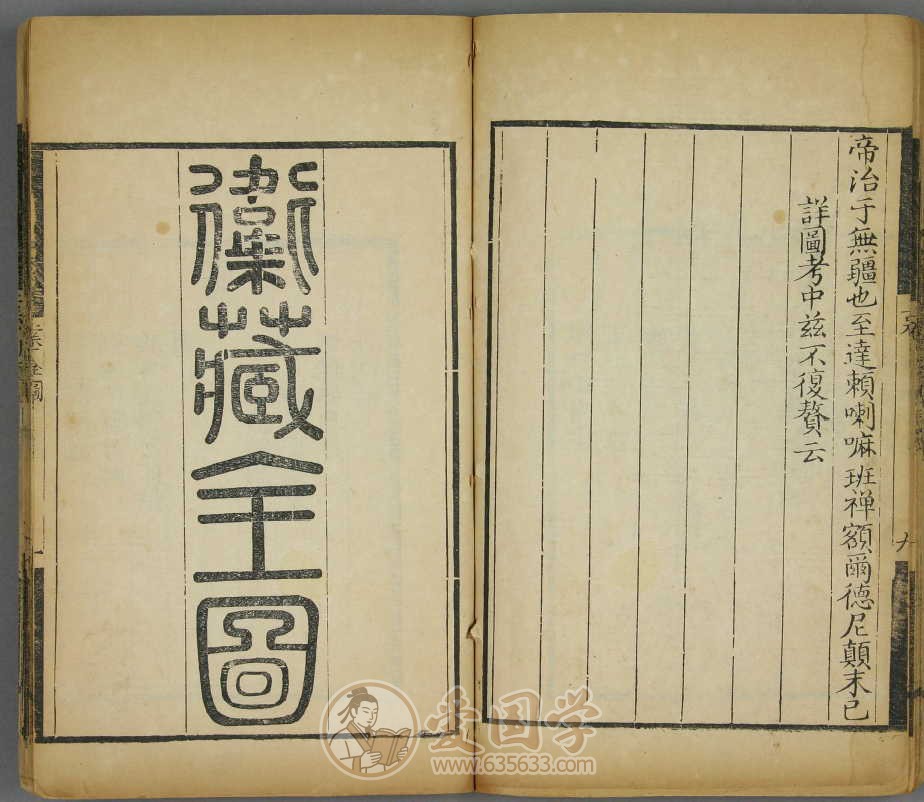 帝治于無疆也至達賴喇嘛班禅額爾德尼顛末已
詳圖考中兹不復贅云
衞藏全圖
爱国学
www.635633.com